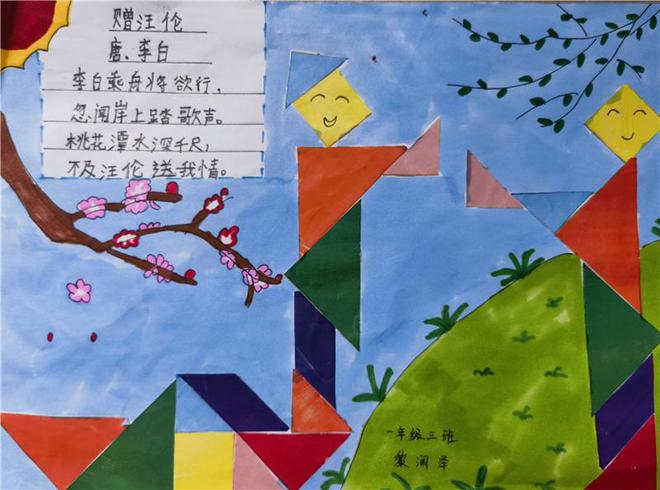 赠汪伦
唐、李白
李白乘舟将欲行,
忽闻岸上踏歌声。
桃花潭水深千尺,
不及汪伦送我情。
一年级三班
黎润泽